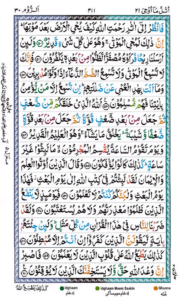 اتل ما اوحی ۲۱ ۴۱۱ الروم ۳۰
فَانْظُرْ اِلٰۤى اٰثٰرِ رَحْمَتِ اللّٰهِ كَيْفَ يُحْيِ الْاَرْضَ بَعْدَ مَوْتِهَا
اِنَّ ذٰلِكَ لَمُحْيِ الْمَوْتٰى وَهُوَ عَلٰى كُلِّ شَيْءٍ قَدِيْرٌ وَلَئِنْ
اَرْسَلْنَا رِيْحًا فَرَاَوْهُ مُصْفَرًّا لَّظَلُّوْا مِنْۢ بَعْدِهٖ يَكْفُرُوْنَ فَاِنَّكَ
لَا تُسْمِعُ الْمَوْتٰى وَلَا تُسْمِعُ الصُّمَّ الدُّعَآءَ اِذَا وَلَّوْا مُدْبِرِيْنَ
وَمَاۤ اَنْتَ بِهٰدِ الْعُمْيِ عَنْ ضَلٰلَتِهِمْ اِنْ تُسْمِعُ اِلَّا مَنْ يُّؤْمِنُ
بِاٰيٰتِنَا فَهُمْ مُّسْلِمُوْنَ اَللّٰهُ الَّذِيْ خَلَقَكُمْ مِّنْ ضَعْفٍ
ثُمَّ جَعَلَ مِنْۢ بَعْدِ ضَعْفٍ قُوَّةً ثُمَّ جَعَلَ مِنْۢ بَعْدِ قُوَّةٍ
ضَعْفًا وَّشَيْبَةً يَخْلُقُ مَا يَشَآءُ وَهُوَ الْعَلِيْمُ الْقَدِيْرُ
وَيَوْمَ تَقُوْمُ السَّاعَةُ يُقْسِمُ الْمُجْرِمُوْنَ مَا لَبِثُوْا غَيْرَ
سَاعَةٍ كَذٰلِكَ كَانُوْا يُؤْفَكُوْنَ وَقَالَ الَّذِيْنَ اُوْتُوا الْعِلْمَ
وَالْاِيْمَانَ لَقَدْ لَبِثْتُمْ فِيْ كِتٰبِ اللّٰهِ اِلٰى يَوْمِ الْبَعْثِ
فَهٰذَا يَوْمُ الْبَعْثِ وَلٰكِنَّكُمْ كُنْتُمْ لَا تَعْلَمُوْنَ فَيَوْمَئِذٍ لَّا يَنْفَعُ
الَّذِيْنَ ظَلَمُوْا مَعْذِرَتُهُمْ وَلَا هُمْ يُسْتَعْتَبُوْنَ وَلَقَدْ
ضَرَبْنَا لِلنَّاسِ فِيْ هٰذَا الْقُرْاٰنِ مِنْ كُلِّ مَثَلٍ وَلَئِنْ جِئْتَهُمْ
بِاٰيَةٍ لَّيَقُوْلَنَّ الَّذِيْنَ كَفَرُوْۤا اِنْ اَنْتُمْ اِلَّا مُبْطِلُوْنَ
كَذٰلِكَ يَطْبَعُ اللّٰهُ عَلٰى قُلُوْبِ الَّذِيْنَ لَا يَعْلَمُوْنَ فَاصْبِرْ
اِنَّ وَعْدَ اللّٰهِ حَقٌّ وَّلَا يَسْتَخِفَّنَّكَ الَّذِيْنَ لَا يُوْقِنُوْنَ